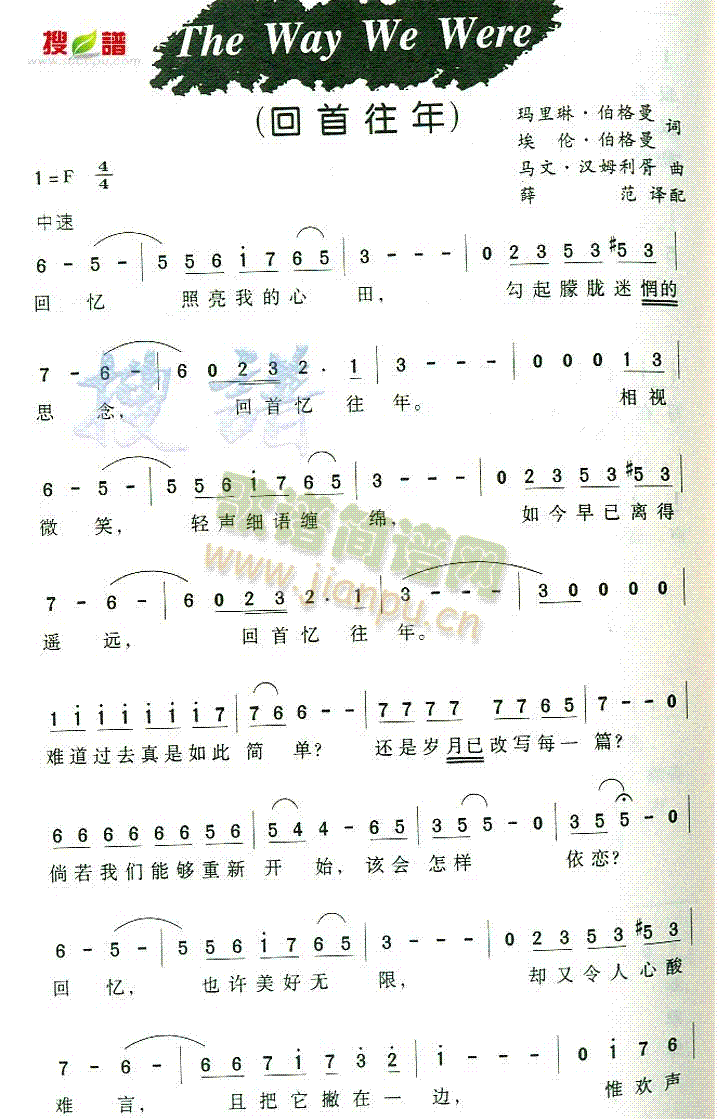 搜谱
www.sooopu.com
The Way We Were
(回首往年)
玛里琳·伯格曼
埃 伦·伯格曼 词
马文·汉姆利胥 曲
薛 范 译配
1=F 4/4
中速
6 - 5 - | 5 5 6 i 7 6 5 | 3 - - - | 0 2 3 5 3 #5 3 |
回 忆 照亮我的心 田, 勾起朦胧迷惘的
7 - 6 - | 6 0 2 3 2 · 1 | 3 - - - | 0 0 0 1 3 |
思 念, 回首忆 往 年。 相视
6 - 5 - | 5 5 6 i 7 6 5 | 3 - - - | 0 2 3 5 3 #5 3 |
微 笑, 轻声细语缠 绵, 如今早已离得
7 - 6 - | 6 0 2 3 2 · 1 | 3 - - - | 3 0 0 0 0 |
遥 远, 回首忆 往 年。
1 i i i i i i 7 | 7 6 6 - - | 7 7 7 7 7 7 6 5 | 7 - - 0 |
难道过去真是如此 简 单? 还是岁月已改写每一 篇?
6 6 6 6 6 6 5 6 | 5 4 4 - 6 5 | 3 5 5 - 0 | 3 5 5 - 0 |
倘若我们能够重新 开 始, 该会 怎样 依恋?
6 - 5 - | 5 5 6 i 7 6 5 | 3 - - - | 0 2 3 5 3 #5 3 |
回 忆, 也许美好无 限, 却又令人心酸
7 - 6 - | 6 6 7 i 7 3 2 | i - - - | 0 i 7 6 |
难 言, 且把它撇在一 边, 惟欢声
歌谱简谱网
www.jianpu.cn
搜谱